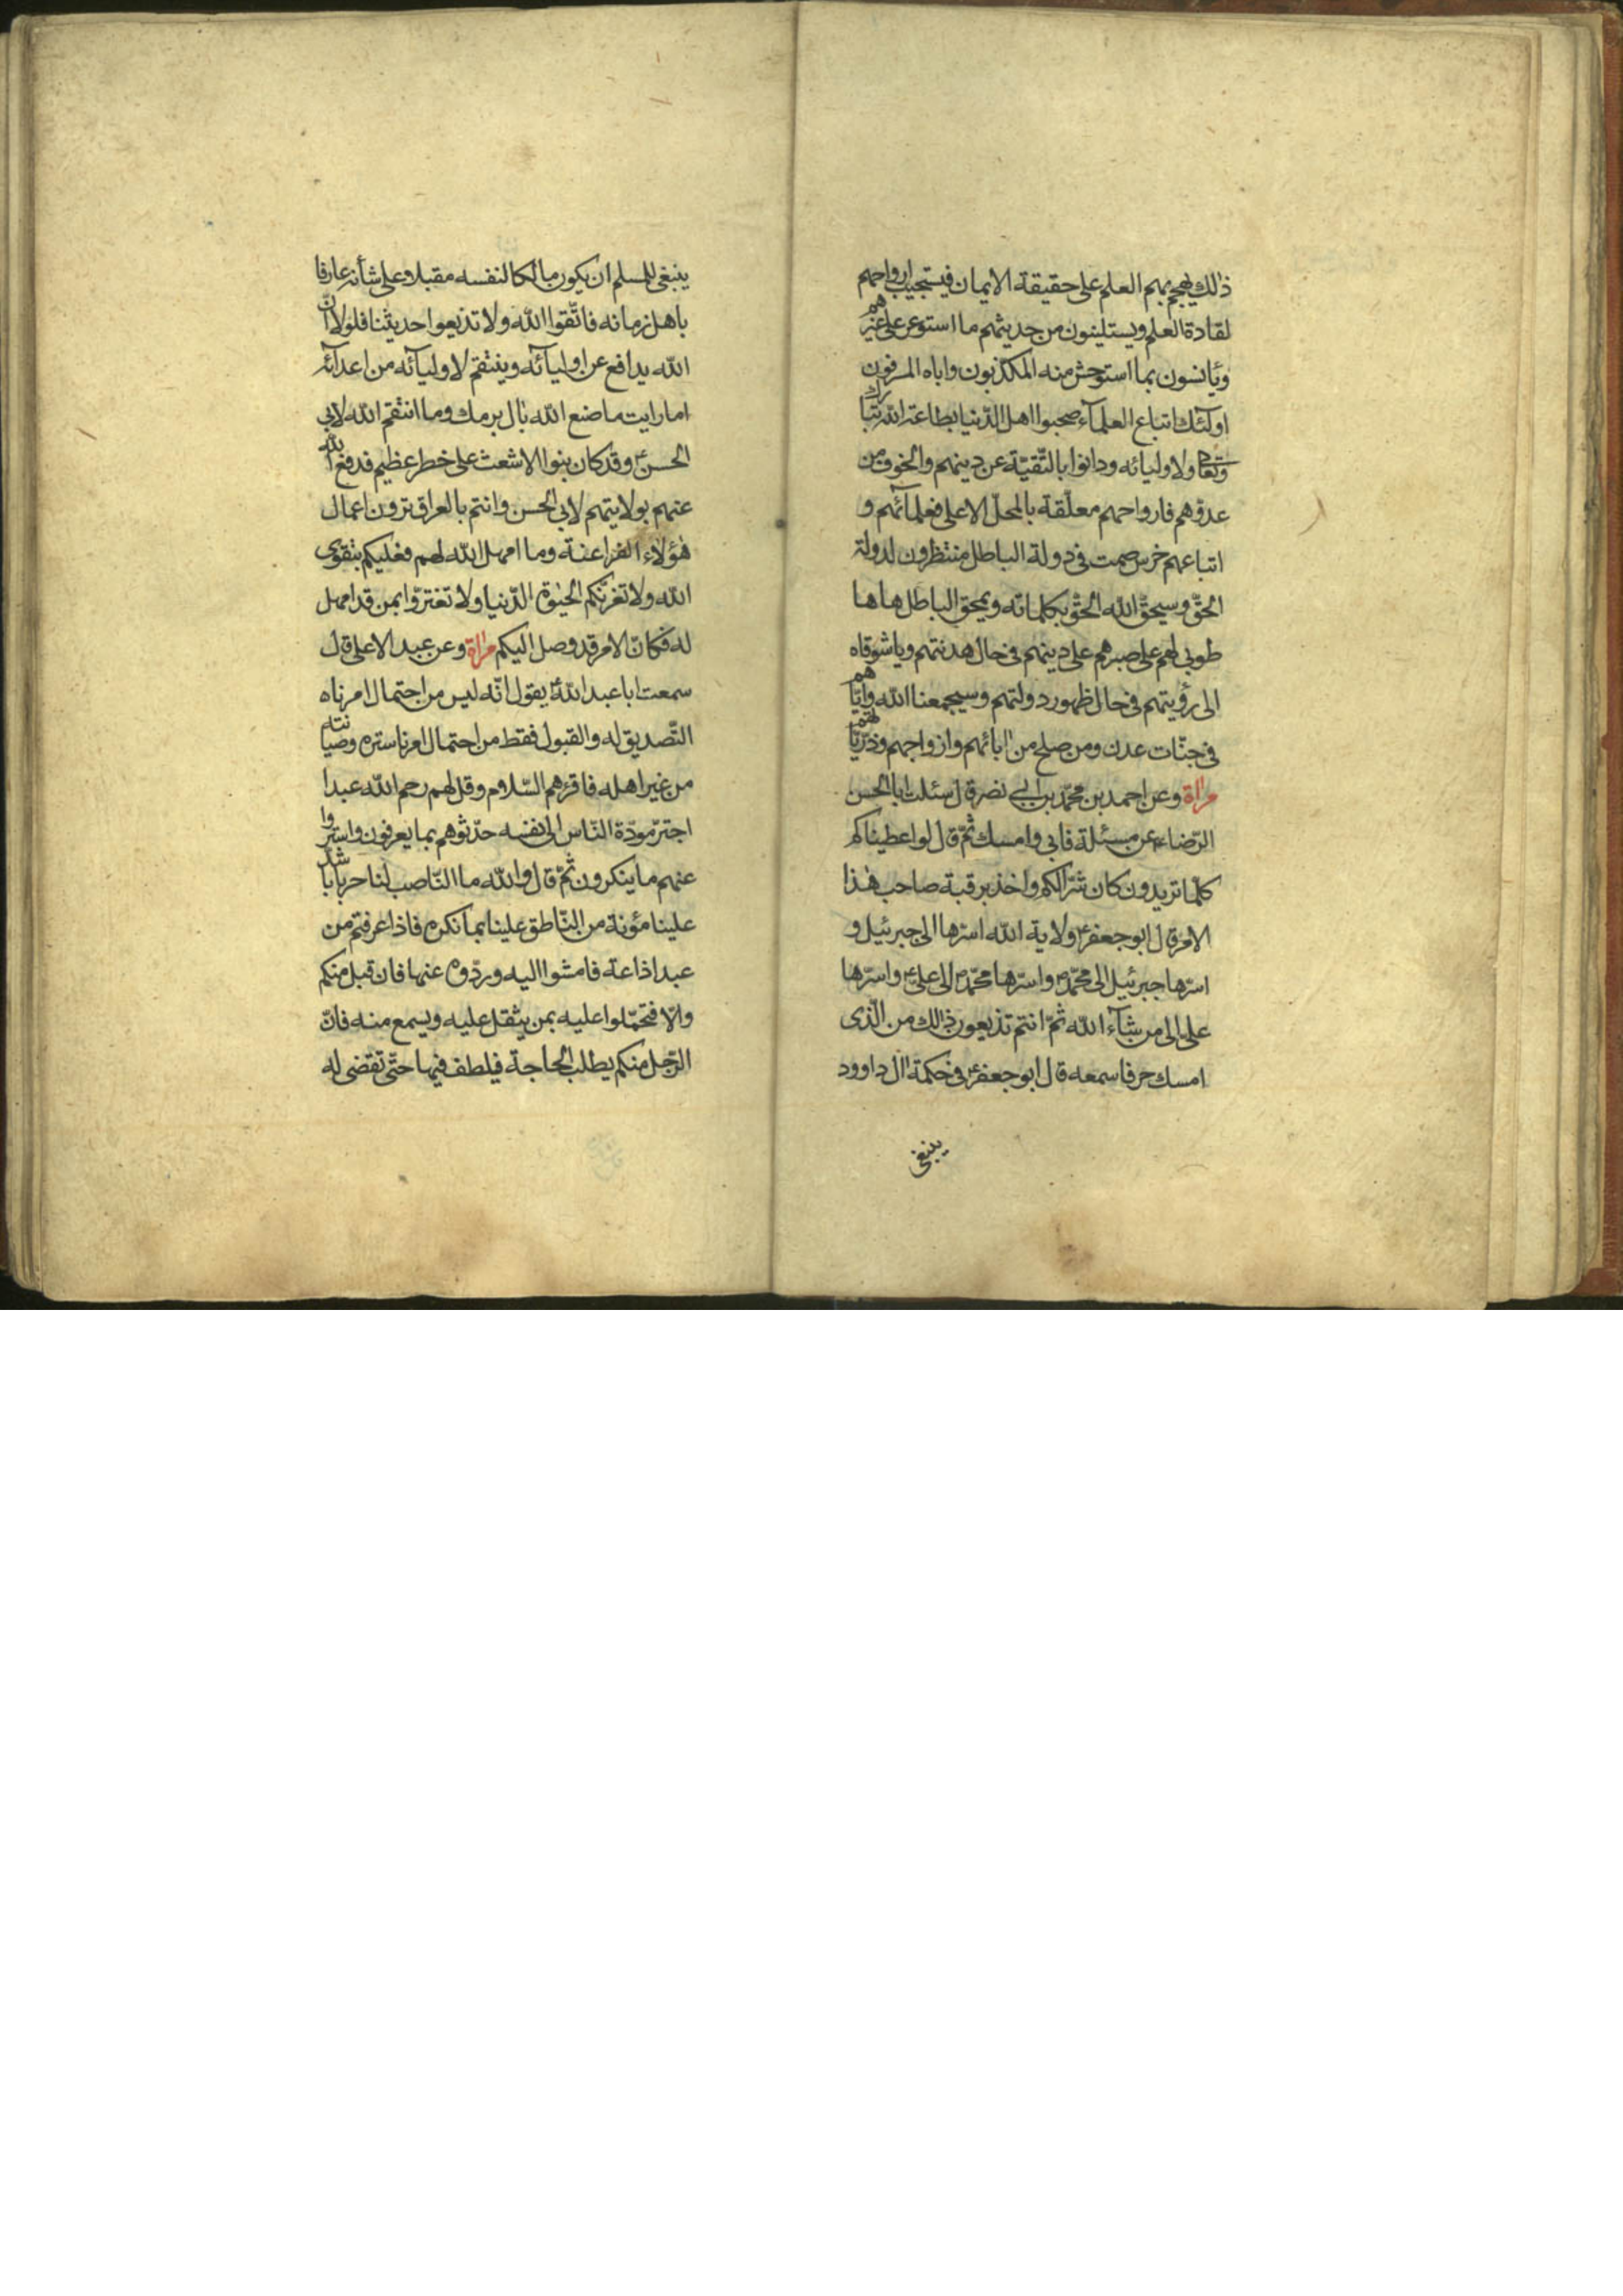 ذلك يهجم بهم العلم على حقيقة الايمان فيستجيب ارواحهم
لقادة العلم ويستلينون من حديثهم ما استوعر على غيرهم
ويأنسون بما استوحش منه المكذبون واباه المسرفون
اولئك اتباع العلمآء صحبوا اهل الدّنيا بطاعة الله تبارك
وتعالى ولاوليائه ودانوا بالتّقيّة عن دينهم والخوف من
عدوّهم فارواحهم معلّقة بالمحلّ الاعلى فعلمآئهم و
اتباعهم خرس صمت في دولة الباطل منتظرون لدولة
الحقّ وسيحقّ الله الحقّ بكلماته ويمحق الباطل ها ها
طوبى لهم على صبرهم على دينهم في حال هدنتهم ويا شوقاه
الى رؤيتهم في حال ظهور دولتهم وسيجمعنا الله وايّاهم
في جنّات عدن ومن صلح من ابائهم وازواجهم وذرّيّاتهم
مرآة وعن احمد بن محمّد بن ابي نصر قال سئلت ابا الحسن
الرّضاء ع عن مسئلة فابى وامسك ثمّ قال لو اعطيناكم
كلّما تريدون كان شرّا لكم واخذ برقبة صاحب هذا
الامر قال ابو جعفر ع ولاية الله اسرّها الى جبرئيل و
اسرّها جبرئيل الى محمّد ص واسرّها محمّد ص الى عليّ ع واسرّها
علي الى من شآء الله ثمّ انتم تذيعون ذلك من الّذى
امسك حرفا سمعه قال ابو جعفر ع في حكمة ال داوود
ينبغى
ينبغى للمسلم ان يكون مالكا لنفسه مقبلا وعلى شأنه عارفا
باهل زمانه فاتّقوا الله ولا تذيعوا حديثنا فلولا انّ
الله يدافع عن اوليآئه وينتقم لاوليآئه من اعدآئه
اما رايت ما صنع الله بال برمك وما انتقم الله لابي
الحسن ع وقد كان بنوا الاشعث على خطر عظيم فدفع الله
عنهم بولايتهم لابي الحسن وانتم بالعراق ترون اعمال
هؤلاء الفراعنة وما امهل الله لهم فعليكم بتقوى
الله ولا تغرنّكم الحيوة الدّنيا ولا تغترّوا بمن قد امهل
له فكانّ الامر قد وصل اليكم مرآة وعن عبد الاعلى قال
سمعت ابا عبد الله ع يقول انّه ليس من احتمال امرناه
التّصديق له والقبول فقط من احتمال امرنا ستره وصيانته
من غير اهله فاقرهم السّلام وقل لهم رحم الله عبدا
اجترّ مودّة النّاس الى نفسه حدّثوهم بما يعرفون واستروا
عنهم ما ينكرون ثمّ قال والله ما النّاصب لنا حربا باشدّ
علينا مؤنة من النّاطق علينا بما نكره فاذا عرفتم من
عبد اذاعة فامشوا اليه وردّوه عنها فان قبل منكم
والّا فتحمّلوا عليه بمن يثقل عليه ويسمع منه فانّ
الرّجل منكم يطلب الحاجة فيلطف فيها حتّى تقضى له